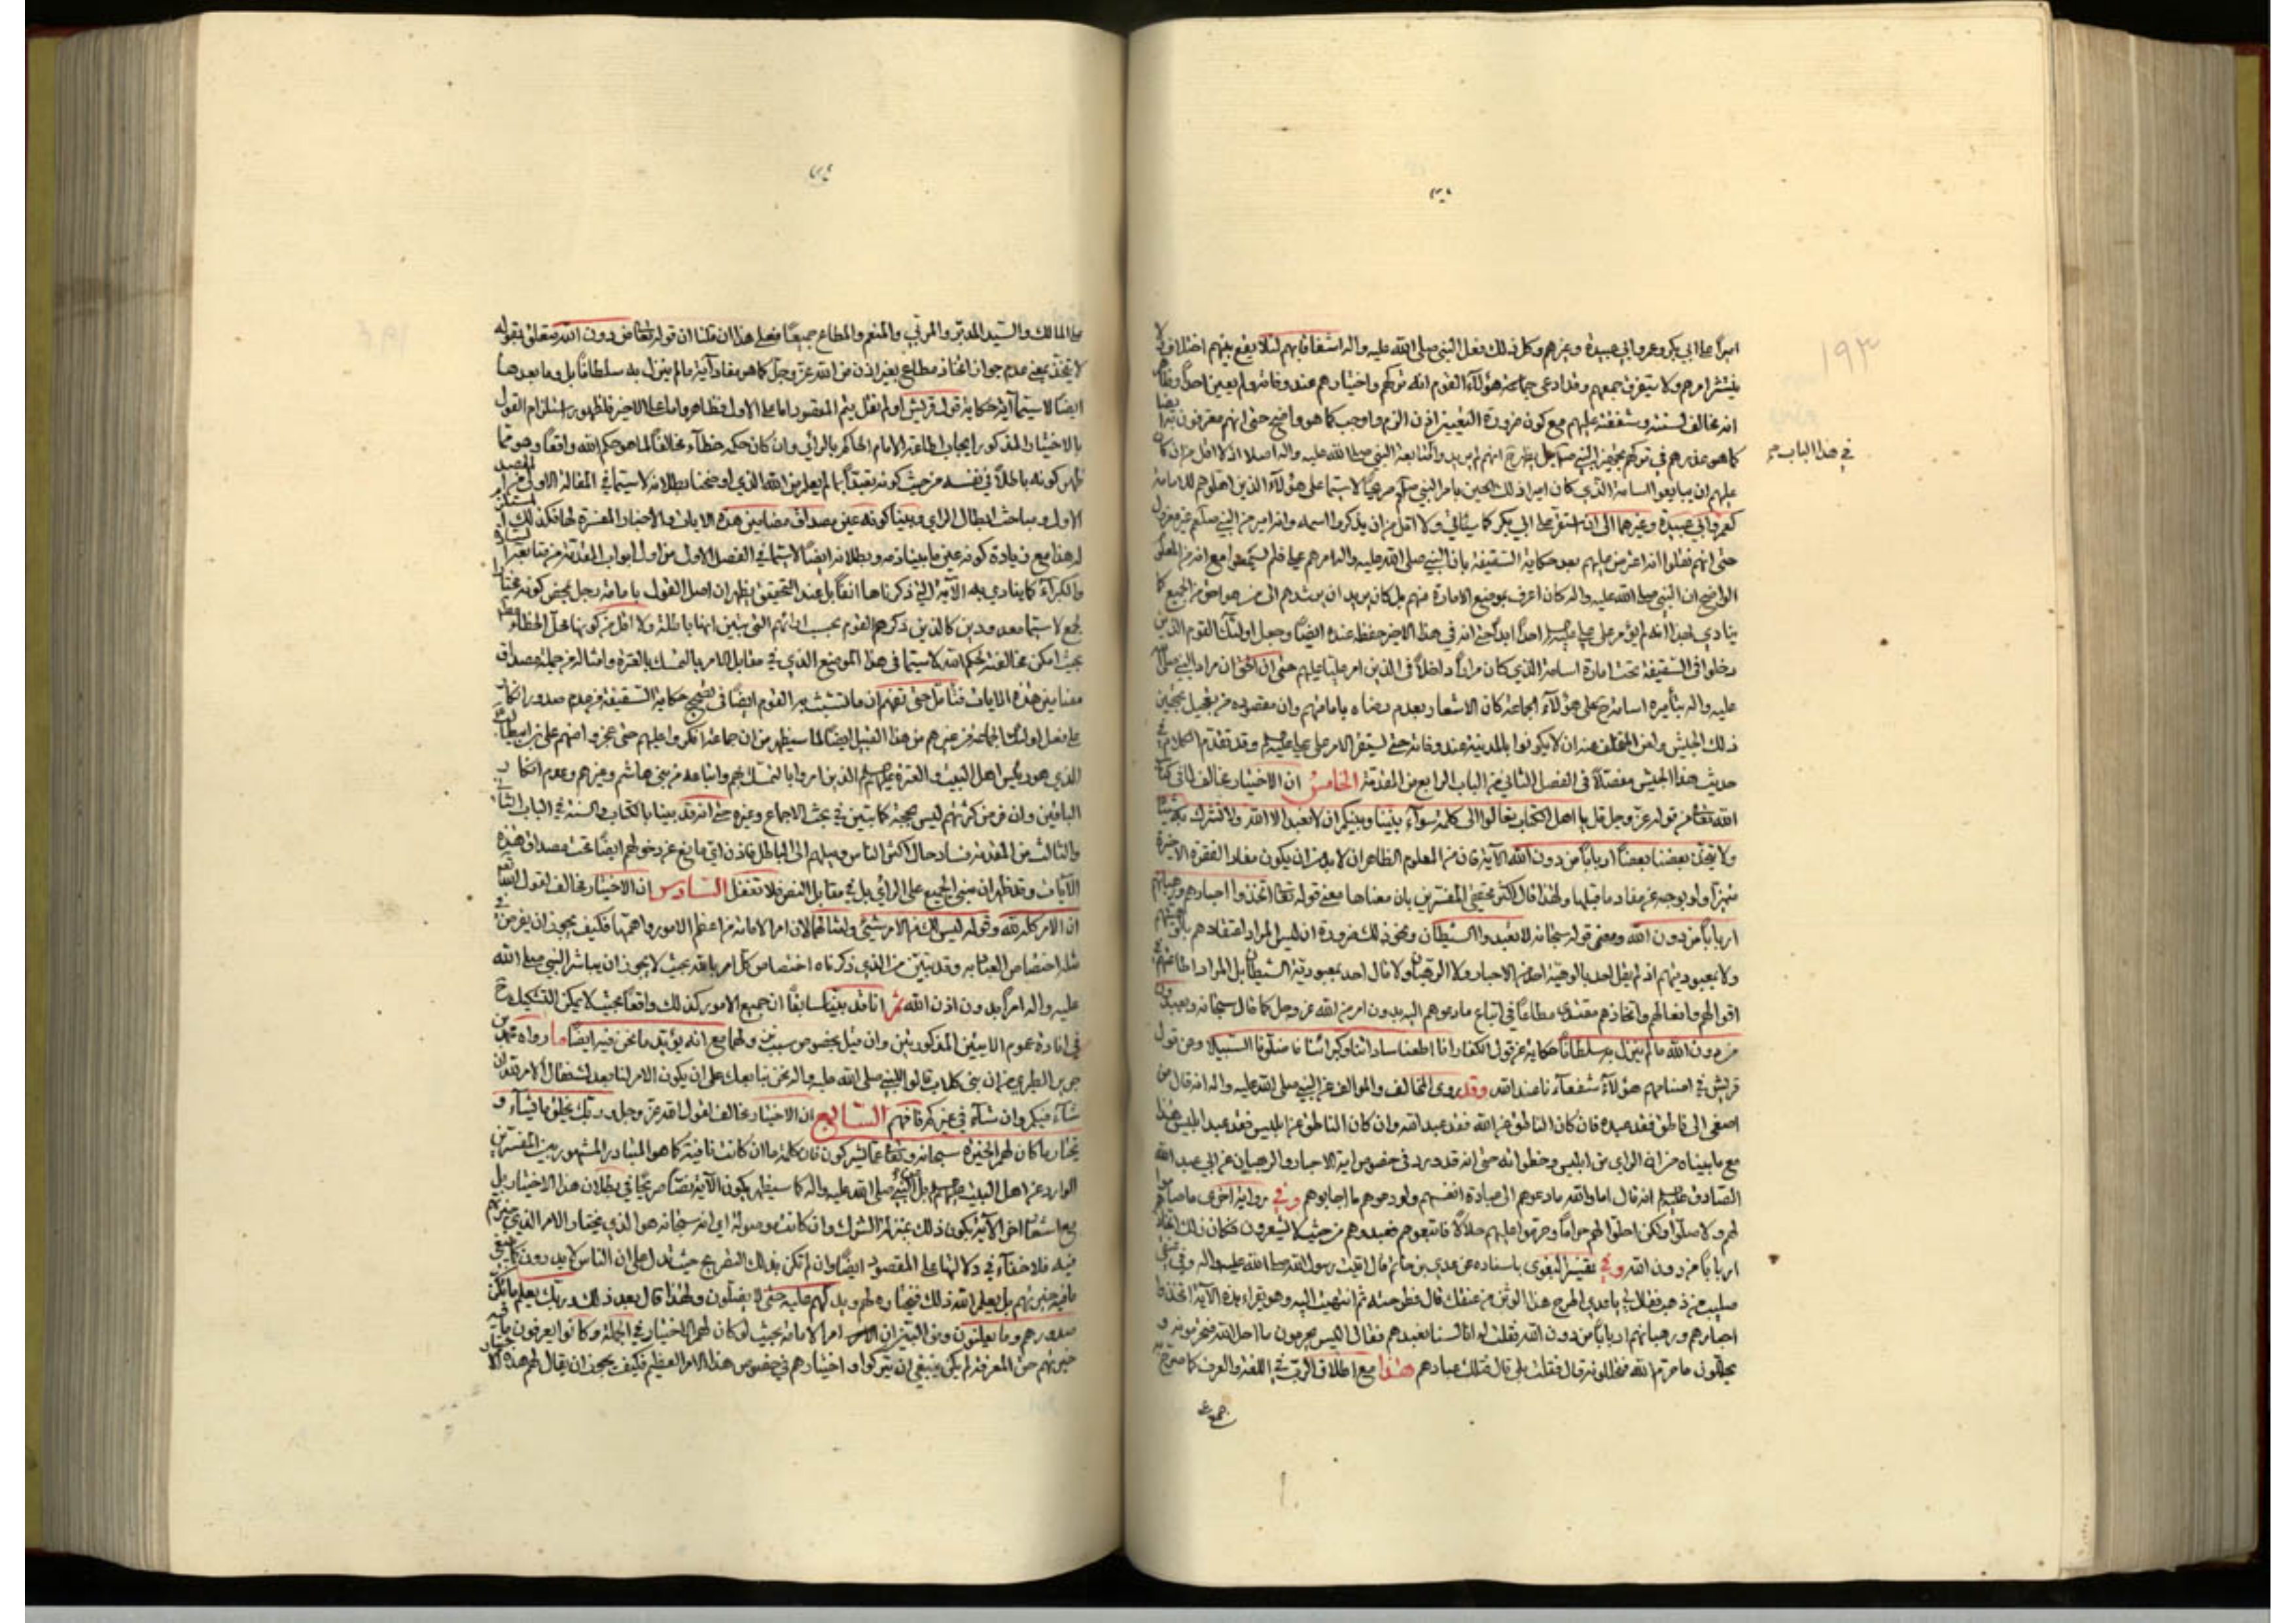 ١٩٣
اميرا على ابي بكر وعمر وابي عبيدة وغيرهم وكل ذلك فعل النبي صلى الله عليه واله اشفاقا بهم لئلا يقع بينهم اختلاف
ينتشر امرهم ولا يتفرق جمعهم وقد ادعى جماعة هؤلاء القوم انه تركهم واختيارهم عند وفاته ولم يعين احدا
انه مخالف لسنته وشفقته عليهم مع كون ضرورة التعيين اذن الزم واوجب كما هو واضح حتى انهم معترفون
كما هو عذرهم في تركهم تجهيز النبي
في هذا الباب
عليهم ان يبايعوا اسامة الذي كان اميرا ذلك الحين بامر النبي صريحا لا سيما على هؤلاء الذين اهلوهم للامامة
كعمر وابي عبيدة وغيرهما الى ان استقر على ابي بكر كما سيأتي ولا اقل من ان يذكروا اسمه وانه امير من النبي غير معزول
حتى انهم نقلوا انه اعترض عليهم بعد حكاية السقيفة بان النبي صلى الله عليه واله امرهم
الواضح ان النبي صلى الله عليه واله كان اعرف بموضع الامارة منهم بل كان يريد ان يرشدهم الى من هو اخص من الجميع كما
ينادي احدا انه لم يؤمر على علي احدا ابدا حتى انه في هذا الاخير حفظه عنده ايضا وجعل اولئك القوم الذين
دخلوا في السقيفة تحت امارة اسامة الذي كان مرارا داخلا في الذين امر عليا عليهم حتى ان الحق ان مراد النبي
عليه واله بتأمير اسامة على هؤلاء الجماعة كان الاشعار بعدم رضاه بامامتهم وان مقصوده من تعجيل تجهيز
ذلك الجيش ولعن المتخلف عنه ان لا يكونوا بالمدينة عند وفاته حتى يستقر الامر على علي وقد تقدم الكلام في
حديث هذا الجيش مفصلا في الفصل الثاني من الباب الرابع من المقدمة الخامس ان الاختيار مخالف لما في كتاب
الله تعالى من قوله عز وجل قل يا اهل الكتاب تعالوا الى كلمة سواء بيننا وبينكم ان لا نعبد الا الله ولا نشرك به شيئا
ولا يتخذ بعضنا بعضا اربابا من دون الله الآية فان من المعلوم الظاهر ان لا بد من ان يكون مفاد الفقرة الاخيرة
متميزا ولو بوجه عن مفاد ما قبلها ولهذا قال اكثر محققي المفسرين بان معناها معنى قوله تعالى اتخذوا احبارهم ورهبانهم
اربابا من دون الله ومعنى قوله سبحانه لا تعبدوا الشيطان ونحو ذلك ضرورة ان ليس المراد اعتقادهم بالوهيتهم
ولا بمعبوديتهم اذ لم يقل احد بالوهية احد من الاحبار ولا الرهبان ولا قال احد بمعبودية الشيطان بل المراد اطاعتهم في
اقوالهم وافعالهم واتخاذهم مقتدى مطاعا في اتباع ما دعوهم اليه بدون امر من الله عز وجل كما قال سبحانه ويعبدون
من دون الله ما لم ينزل به سلطانا حكاية عن قول الكفار انا اطعنا ساداتنا وكبراءنا فاضلونا السبيلا وعن قول
قريش في اصنامهم هؤلاء شفعاؤنا عند الله وقد روى المخالف والموالف عن النبي صلى الله عليه واله انه قال من
اصغى الى ناطق فقد عبده فان كان الناطق عن الله فقد عبد الله وان كان الناطق عن ابليس فقد عبد ابليس هذا
مع ما بيناه من ان الراي من ابليس وخطواته حتى انه قد ورد في خصوص اية الاحبار والرهبان عن ابي عبد الله
الصادق انه قال اما والله ما دعوهم الى عبادة انفسهم ولو دعوهم ما اجابوهم وفي رواية اخرى ما صاموا
لهم ولا صلوا ولكن احلوا لهم حراما وحرموا عليهم حلالا فاتبعوهم فعبدوهم من حيث لا يشعرون فكان ذلك اتخاذ
اربابا من دون الله وفي تفسير البغوي باسناده عن عدي بن حاتم قال اتيت رسول الله صلى الله عليه واله وفي عنقي
صليب من ذهب فقال لي يا عدي اطرح هذا الوثن من عنقك قال فطرحته ثم انتهيت اليه وهو يقراء هذه الآية اتخذوا
احبارهم ورهبانهم اربابا من دون الله فقلت له انا لسنا نعبدهم فقال اليس يحرمون ما احل الله فتحرمونه و
يحللون ما حرم الله فتحللونه قال فقلت بلى قال فتلك عبادتهم هذا مع اطلاق الرب في اللغة والعرف كما صرح به
جمع
على المالك والسيد المدبر والمربي والمنعم والمطاع جميعا فعلى هذا ان قلنا ان قوله تعالى من دون الله متعلق بقوله
لا يتخذ بمعنى عدم جواز اتخاذ مطاع بغير اذن من الله عز وجل كما هو مفاد آية ما لم ينزل به سلطانا بل وما بعدها
ايضا لا سيما آية حكاية قول قريش او لم نقل يتم المقصود اما على الاول فظاهر واما على الاخير فلظهور استلزام القول
بالاختيار المذكور ايجاب اطاعة الامام الحاكم بالرأي وان كان حكمه خطاء مخالفا لما هو حكم الله واقعا وهو مما
ظهر كونه باطلا في نفسه من حيث كونه تعبدا بما لم يعلم من الله الذي اوضحنا بطلانه لا سيما في المقالة الاولى من المقصد
الاول ومباحث ابطال الراي وبينا كونه عين مصداق مضامين هذه الايات والاخبار المفسرة لها فكذلك المستلزم
له هذا مع زيادة كونه عين ما بينا ذمه وبطلانه ايضا لا سيما في الفصل الاول من اول ابواب المقدمة من متابعة السادة
والكبراء كما ينادي به الآية التي ذكرناها انفا بل عند التحقيق يظهر ان اصل القول بامامة رجل بمحض كونه مختارا
لجمع لا سيما معدودين كالذين ذكرهم القوم بحسب ارائهم التي تبين انها باطلة ولا اقل من كونها محل الخطاء
بحيث امكن مخالفته لحكم الله لا سيما في هذا الموضع الذي في مقابل الامر بالتمسك بالعترة وامثاله من جملة مصداق
مضامين هذه الايات فتأمل حتى تفهم ان ما تشبث به القوم ايضا في تصحيح حكاية السقيفة من عدم صدور انكار
على فعل اولئك الجماعة من غيرهم من هذا القبيل ايضا لما سيظهر من ان جماعة انكروا عليهم حتى عجزوا منهم علي بن ابي طالب
الذي هو رئيس اهل البيت والعترة الذين امروا بالتمسك بهم واتباعه من بني هاشم وغيرهم وعدم انكار
الباقين وان فرض كثرتهم ليس بحجة كما تبين في بحث الاجماع وغيره حتى انه قد بينا بالكتاب والسنة في الباب الثاني
والثالث من المقدمة فساد حال اكثر الناس وميلهم الى الباطل فاذن اي مانع عن دخولهم ايضا تحت مصداق هذه
الآيات وقد ظهر ان مبنى الجميع على الرأي بل في مقابل النص فلا تغفل السادس ان الاختيار مخالف لقول الله تعالى
ان الامر كله لله وقوله ليس لك من الامر شيء وامثالهما لان امر الامامة من اعظم الامور واهمها فكيف يجوز ان يفرض في
مثله اختصاص العباد به وقد تبين من الذي ذكرناه اختصاص كل امر بالله بحيث لا يجوز ان يباشر النبي صلى الله
عليه واله امرا بدون اذن الله ثم انا قد بينا سابقا ان جميع الامور كذلك واقعا بحيث لا يمكن التشكيك
في افادة عموم الايتين المذكورتين وان قيل بخصوص سبب نزولهما مع انه يؤيد ما نحن فيه ايضا ما رواه محمد بن
جرير الطبري من ان بني كلاب قالوا للنبي صلى الله عليه واله نحن نبايعك على ان يكون الامر لنا بعدك فقال الامر لله ان
شاء فيكم وان شاء في غيركم فافهم السابع ان الاختيار مخالف لقول الله عز وجل وربك يخلق ما يشاء و
يختار ما كان لهم الخيرة سبحانه وتعالى عما يشركون فان كلمة ما ان كانت نافية كما هو المتبادر المشهور بين المفسرين
الوارد عن اهل البيت بل النبي صلى الله عليه واله كما سيظهر يكون الآية نصا صريحا في بطلان هذا الاختيار بل
مع اشعار اخر الآية بكون ذلك بمنزلة الشرك وان كانت موصولة اي انه سبحانه هو الذي يختار الامر الذي خيرتهم
فيه فلا خفاء في دلالتها على المقصود ايضا وان لم تكن بذلك التصريح حيث تدل على ان الناس لا يدرون
ما فيه خيرتهم بل يعلم الله ذلك فيختاره لهم ويدلهم عليه حتى لا يضلون ولهذا قال بعد ذلك وربك يعلم ما تكن
صدورهم وما يعلنون ومن البين ان امر الامامة بحيث لو كان لهم الاختيار في الجملة وكانوا يعرفون ما فيه
خيرتهم حق المعرفة لم يكن ينبغي ان يتركوا واختيارهم في خصوص هذا الامر العظيم فكيف يجوز ان يقال لهم هذا